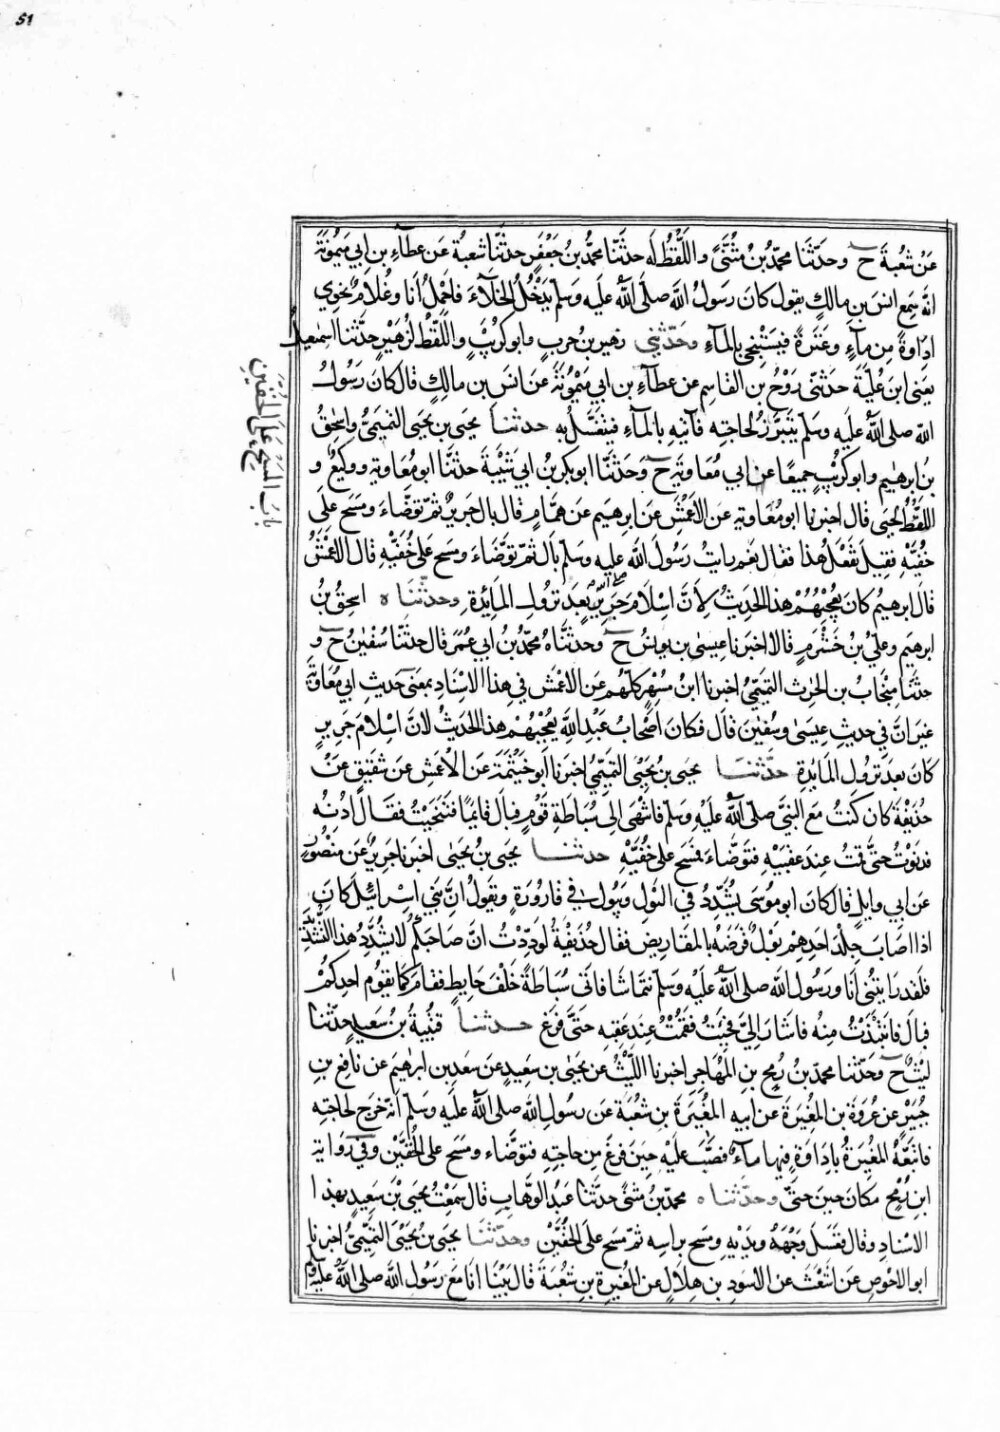 51
عَنْ شعْبةَ ح وحدّثَنا محمّدُ بْنُ مُثَنًّى واللَّفْظُ لَه حدثَنا محمّدُ بنُ جَعْفَرٍ حدثَنا شعبةُ عَن عطآءِ بن ابي مَيْمُونَةَ
انه سَمِع انسَ بن مالكٍ يقول كانَ رَسولُ الله صلى اللهُ عليه وسَلم يَدْخُلُ الخَلآءَ فاَحْمِلُ اَنَا وغُلامٌ نَحْوِي
اِدَاوَةً مِن مآءٍ وعَنَزَةً فيَسْتَنْجِي بالمآءِ وحَدّثني زهير بن حربٍ وابو كريبٍ واللّفظُ لزُهَيْرٍ حدّثنا اسمعيل
يعنى ابن عُليّة حدثني رَوْحُ بن القاسِمِ عن عطآءِ بن ابي مَيْمُونَةَ عَن انسِ بن مالكٍ قال كانَ رَسُولُ
الله صلى اللهُ عليه وسَلم يتبَرَّزُ لحاجتِه فآتيه بالمآءِ فيتغَسَّلُ به حدثنا يحيى بن يحيَى التميمىُّ واسحقُ
بن ابرهيم وابو كريبٍ جميعًا عن ابي مُعَاويَة ح وحَدثنَا ابو بكر بنُ ابي شَيْبَةَ حدثنَا ابو مُعَاوية ووكيعٌ و
اللّفظُ ليحيَى قال اخبرنا ابو مُعَاوية عن الاَعْمَشِ عَن ابرهيم عَن همّامٍ قال بال جَريرٌ ثمّ توضّاءَ ومسَح على
خُفّيْهِ فقيلَ تفعَلُ هذا فقال نعَم رايتُ رسُولَ الله صلى الله عليه وسَلم بَالَ ثمّ توَضَّاءَ ومسح على خُفّيْهِ قال الاعمشُ
قال ابرهيمُ كان يُعْجِبُهُمْ هذا الحديثُ لاَنَّ اسلامَ جَرِيرٍ كان بَعدَ نزولِ المائِدةِ وحدّثناه اسحقُ بنُ
ابرهيمَ وعليُّ بنُ خَشْرَمٍ قالا اخبرنا عيسىٰ بن يونسَ ح وحدثناهُ محمّدُ بنُ ابي عُمَرَ قال حدثَنا سُفيٰنُ ح و
حدثَنا مِنجَابُ بن الحٰرثِ التميمىُّ اخبرنا ابنُ مُسْهِرٍ كلّهُم عَن الاعمش في هذا الاسنادِ بمعنَى حَديثِ ابي مُعاويَةَ
غيرَ اَنَّ في حديثِ عيسَىٰ وسفيٰنَ قالَ فكانَ اصْحابُ عَبدِ اللهِ يُعْجِبُهُمْ هذا الحَديثُ لاَنّ اسْلامَ جَريرٍ
كان بعدَ نزولِ المآئِدةِ حدّثنا يحيَى بن يَحيَى التميمىُّ اخبرنا ابو خَيْثَمَةَ عَن الاعمشِ عن شقيقٍ عَنْ
حُذيْفَةَ كان كنتُ مَعَ النبىِّ صلى اللهُ عليْهِ وسَلم فانتهَى الى سُباطَةِ قَوْمٍ فبالَ قائِمًا فتنَحّيْتُ فقالَ ادْنُهْ
فدنوْتُ حتىّ قمْتُ عندَ عقبَيْهِ فتوَضّاءَ فمسَح على خُفّيْهِ حدثنا يحيَى بن يحيَى اخبرنا جريرٌ عَن منصُورٍ
عن ابي وايلٍ قال كانَ ابو مُوسَى يُشدِّدُ في البَوْلِ ويَبُولُ في قارُورَةٍ ويقولُ اِنَّ بني اسرائيلَ كانَ
اذا اصَابَ جِلدَ احَدِهِمْ بوْلٌ قرَضَهُ بالمقارِيضِ فقال حُذيفةُ لوَدِدْتُ انّ صاحبَكُم لا يُشدِّدُ هذا التشديدَ
فلقد رايتُنى اَنَا ورَسُول الله صلى اللهُ عليْهِ وسَلم نتماشا فاتى سُبَاطَةً خَلْفَ حايطٍ فقامَ كما يقومُ احدكُمْ
فبالَ فانتَبَذْتُ مِنهُ فاشارَ اِلىَّ فجِئتُ فقمْتُ عندَ عقِبهِ حتىّ فرَغ حدثنا قتيبةُ بنُ سَعيدٍ حدّثنا
ليثٌ ح وحَدّثنا محمد بنُ رُمْحِ بنِ المُهاجر اخبرنا الليْثُ عن يحيَى بن سَعيدٍ عن سَعدِ بن ابرهيمَ عن نافعِ بنِ
جُبَيْرٍ عن عُروَةَ بن المُغيرَةِ عن ابيه المُغيَرةِ بن شُعْبَةَ عَن رسُولِ الله صلى اللهُ عليْه وسَلم انّه خرَج لحاجتِه
فاتبَعَهُ المُغيرَةُ بإدَاوَةٍ فيها مآءٌ فصَبَّ عليْهِ حينَ فرغَ مِن حاجتِهِ فتوَضّاءَ ومسَح على الخُفّيْنِ وفي رواية
ابن رُمْحٍ مكانَ حينَ حتىّ وحدّثناه محمّدُ بن مثنىّ حدثَنا عبدُ الوهّابِ قال سَمعتُ يحيى بْنَ سَعيدٍ بهذا
الاسنادِ وقال فغسَل وَجْهَهُ ويدَيْهِ ومسَح براسِه ثمّ مسَح على الخُفّيْنِ وحدّثنا يحيَى بن يحْيَى التميمىُّ اخبرنا
ابو الاحْوَصِ عَن اَشعَثَ عن الاسوَدِ بن هِلالٍ عنِ المُغيرَةِ بنِ شُعْبَةَ قال بَيْنا اَنا مَعَ رَسُولِ الله صلى اللهُ عليْه وسلم
باب المسح على الخفين